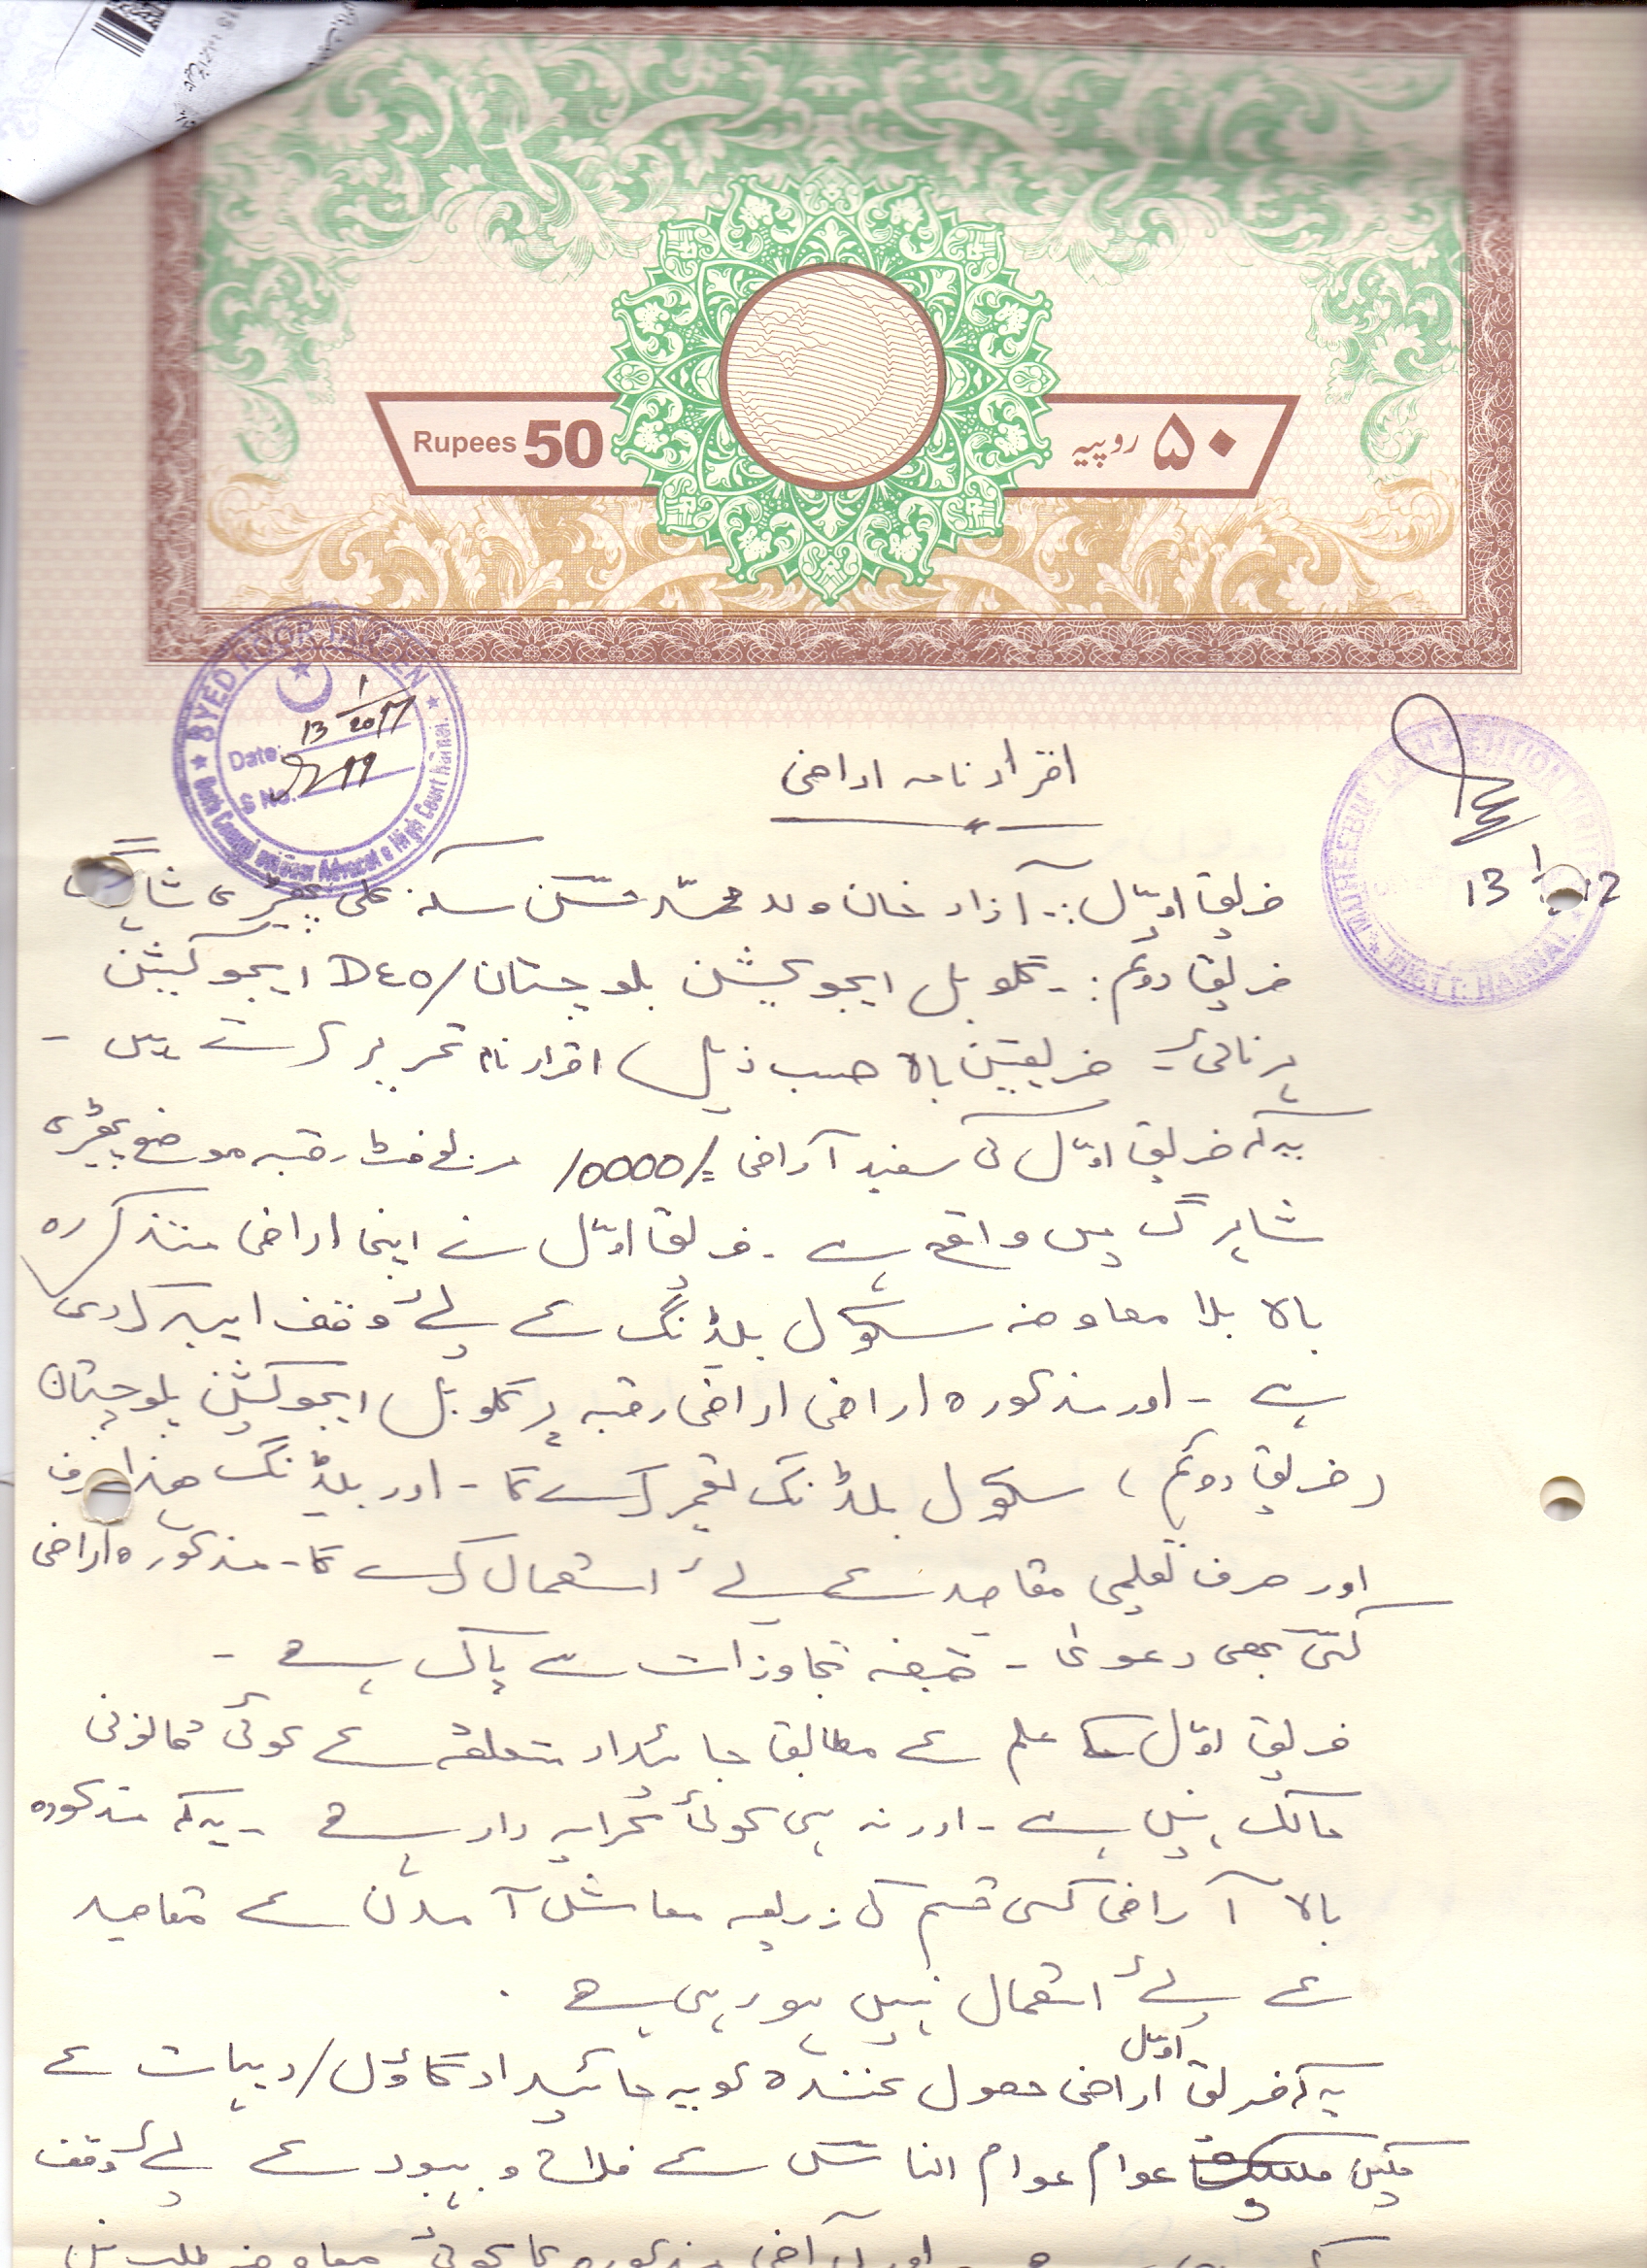 Rupees 50
۵۰ روپیہ
Date: 13/1/2017
S No. 
Oath Commissioner Advocate High Court Harnai.
DISTT. HARNAI
13
اقرار نامہ اراضی
فریق اوّل :۔ آزاد خان ولد محمد حسن سکنہ کلی
فریق دوئم :۔ گلوبل ایجوکیشن بلوچستان/DEO ایجوکیشن
ہرنائی۔ فریقین بالا حسب ذیل اقرار نامہ تحریر کرتے ہیں ۔
یہ کہ فریق اوّل کی سفید آراضی /10000 مربع فٹ رقبہ موضع
شاہرگ میں واقع ہے ۔ فریق اوّل نے اپنی اراضی متذکرہ
بالا بلا معاوضہ سکول بلڈنگ کے لئے وقف کر دی
ہے ۔ اور مذکورہ اراضی اراضی رقبہ پر گلوبل ایجوکیشن بلوچستان
(فریق دوئم) سکول بلڈنگ تعمیر کرے گا ۔ اور بلڈنگ ھذا صرف
اور صرف تعلیمی مقاصد کے لئے استعمال کرے گا ۔ مذکورہ اراضی
کسی بھی دعویٰ ۔ قبضہ تجاوزات سے پاک ہے ۔
فریق اوّل کے علم کے مطابق جائیداد متعلقہ کے کوئی قانونی
مالک نہیں ہے ۔ اور نہ ہی کوئی کرایہ دار ہے ۔ یہ کہ مذکورہ
بالا آراضی کسی قسم کی زریعہ معاش آمدن کے مقاصد
کے لئے استعمال نہیں ہو رہی ہے ۔
یہ کہ فریق اوّل اراضی حصول کنندہ کو یہ جائیداد گاؤں/دیہات کے
مکین عوام عوام الناس کے فلاح و بہبود کے لئے وقف
اور آراضی مذکورہ کا کوئی معاوضہ طلب